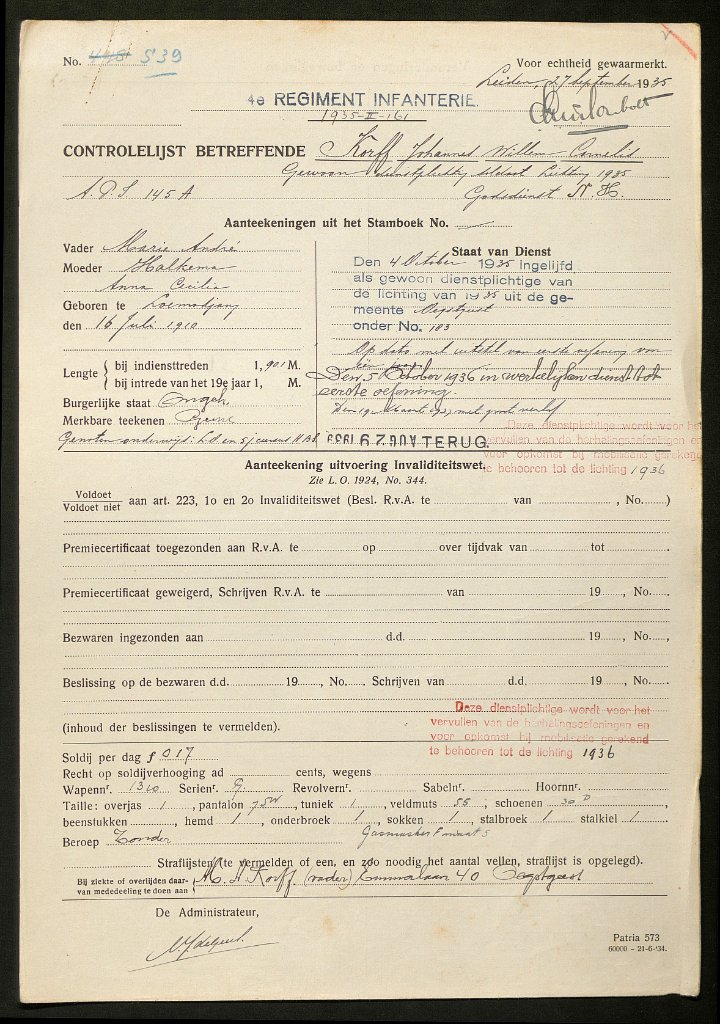 No. 539
Voor echtheid gewaarmerkt.
Leiden, 27 September 1935
4e REGIMENT INFANTERIE.
1935-II-161
CONTROLELIJST BETREFFENDE Korff Johannes Willem Cornelis
Gewoon dienstplichtig soldaat Lichting 1935
A.P.S 145 A Godsdienst N.H.
Aanteekeningen uit het Stamboek No.
Vader Marie André
Moeder Halkema
Anna Cecilia
Geboren te Loemadjang
den 16 Juli 1910
Lengte bij indiensttreden 1,901 M.
bij intrede van het 19e jaar 1, M.
Burgerlijke staat Ongeh.
Merkbare teekenen Geene
Genoten onderwijs: L.O en 5 j cursus H.B.S
Staat van Dienst
Den 4 October 1935 Ingelijfd
als gewoon dienstplichtige van
de lichting van 1935 uit de ge-
meente Oegstgeest
onder No. 103
Op dato met uitstel van eerste oefening voor
één jaar
Den 5 October 1936 in werkelijken dienst tot
eerste oefening.
met groot verlof
29 AUG. 1939 TERUG
Deze dienstplichtige wordt voor het
vervullen van de herhalingsoefeningen en
voor opkomst bij mobilisatie gerekend
te behooren tot de lichting 1936
Aanteekening uitvoering Invaliditeitswet.
Zie L.O. 1924, No. 344.
Voldoet
Voldoet niet aan art. 223, 1o en 2o Invaliditeitswet (Besl. R.v.A. te van , No. )
Premiecertificaat toegezonden aan R.v.A. te op over tijdvak van tot
Premiecertificaat geweigerd, Schrijven R.v.A. te van 19 , No.
Bezwaren ingezonden aan d.d. 19 , No. ,
Beslissing op de bezwaren d.d. 19 , No. , Schrijven van d.d. 19 , No. ,
Deze dienstplichtige wordt voor het
vervullen van de herhalingsoefeningen en
voor opkomst bij mobilisatie gerekend
te behooren tot de lichting 1936
(inhoud der beslissingen te vermelden).
Soldij per dag f 017
Recht op soldijverhooging ad cents, wegens
Wapennr. 1310 Serienr. G. Revolvernr. Sabelnr. Hoornnr.
Taille: overjas 1 , pantalon 75W , tuniek 1 , veldmuts 55 , schoenen 30 D ,
beenstukken , hemd 1 , onderbroek 1 , sokken 1 , stalbroek 1 stalkiel 1
Beroep Zonder Gasmasker maat 5
Straflijsten (te vermelden of een, en zoo noodig het aantal vellen, straflijst is opgelegd).
Bij ziekte of overlijden daar-
van mededeeling te doen aan M. A. Korff (vader) Emmalaan 40 Oegstgeest
De Administrateur,
Patria 573
60000 - 21-6-'34.